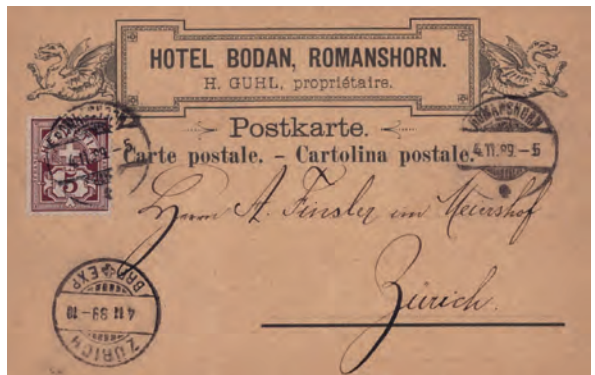 HOTEL BODAN, ROMANSHORN.
H. GUHL, propriétaire.
Postkarte.
Carte postale. – Cartolina postale.
ROMANSHORN
4.11.99.–5
5
Herrn A. Finsler im Meiershof
Zürich.
ZÜRICH
4 11 99 –10
BRF EXP